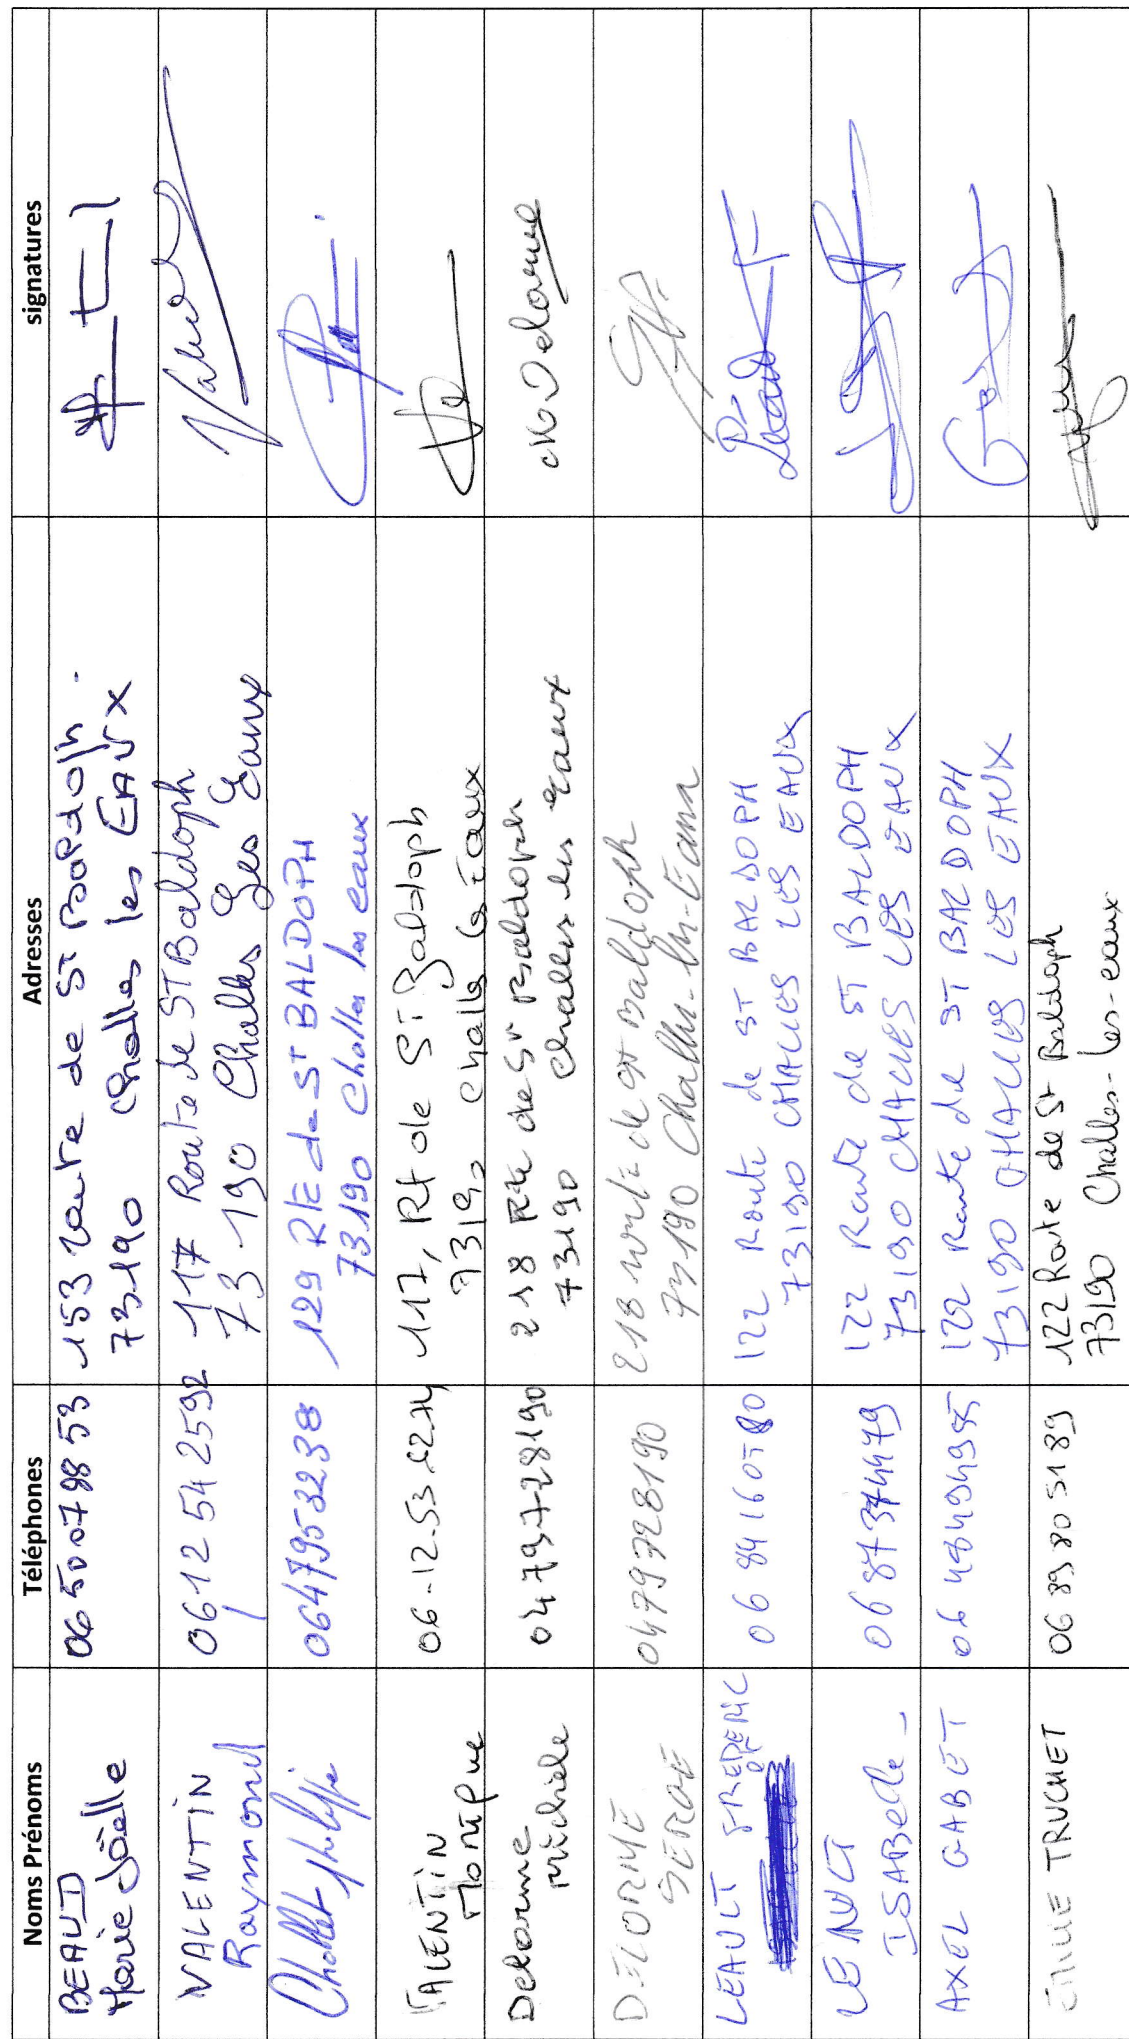 Noms Prénoms Téléphones Adresses signatures
BEAUD
Marie Joëlle
06 50 07 98 53
153 route de St Baldoph.
73190 Challes les EAUX
VALENTIN
Raymond
06 12 54 25 92
117 Route de ST Baldoph
73 190 Challes Les Eaux
Chollet philippe
0647953238
129 Rte de ST BALDOPH
73190 Challes les eaux
VALENTIN
Monique
06-12-53
117, Rt de ST Baldoph
73190 Challes les Eaux
Delorme
Michèle
0479728190
218 Rte de St Baldoph
73190 Challes les eaux
M Delorme
DELORME
SERGE
0479728190
218 route de St Baldoph
73190 Challes-les-Eaux
LEAULT FREDERIC
06 84 160
122 Route de ST BALDOPH
73190 CHALLES LES EAUX
Leault
LENULT
ISABelle
06 87374479
122 Route de ST BALDOPH
73190 CHALLES LES EAUX
AXEL GABET
06 48494985
122 Route de ST BALDOPH
73190 CHALLES LES EAUX
EMILIE TRUCHET
06 89 80 51 89
122 Route de St Baldoph
73190 Challes-les-eaux